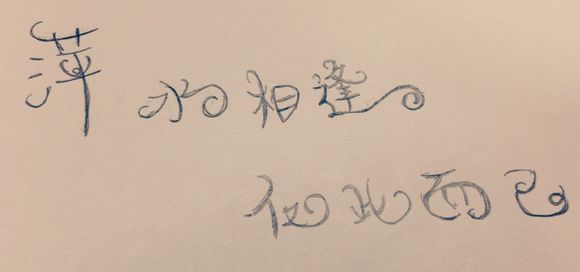 萍水相逢
仅此而已